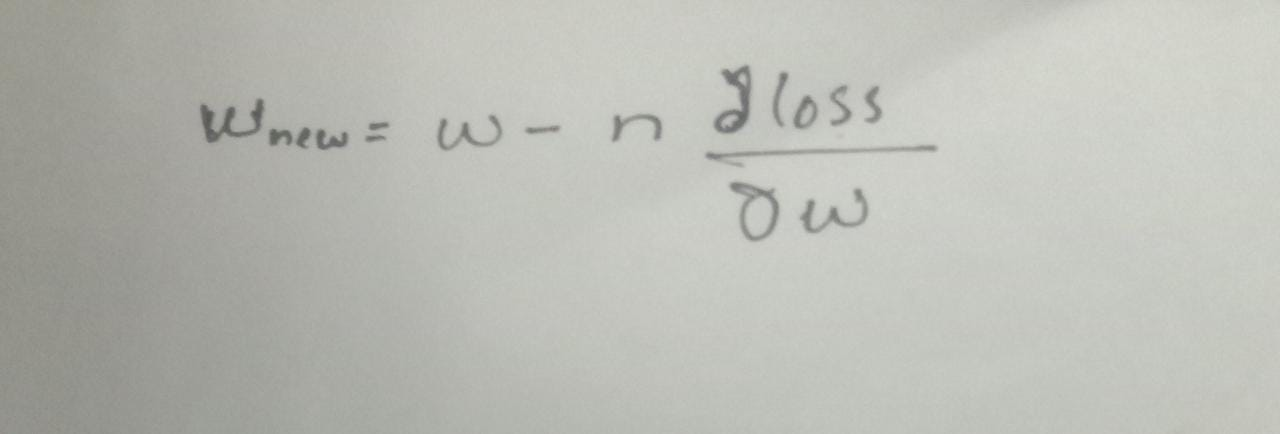 w_new = w - n ∂loss / ∂w